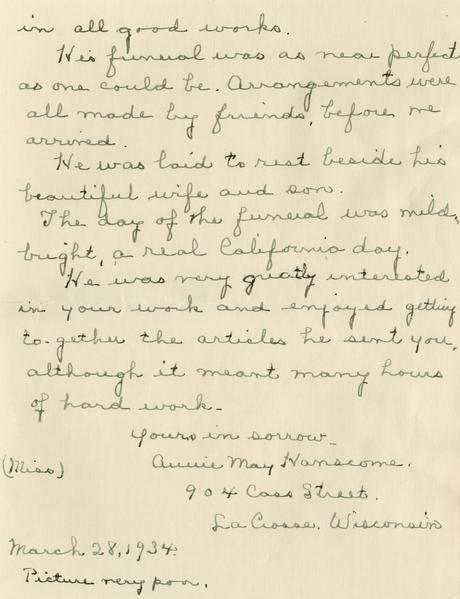 in all good works.
His funeral was as near perfect
as one could be. Arrangements were
all made by friends, before we
arrived.
He was laid to rest beside his
beautiful wife and son.
The day of the funeral was mild,
bright, a real California day.
He was very greatly interested
in your work and enjoyed getting
to-gether the articles he sent you,
although it meant many hours
of hard work-
Yours in sorrow-
(Miss) Annie May Hanscome.
904 Cass Street.
La Crosse, Wisconsin
March 28, 1934.
Picture very poor.